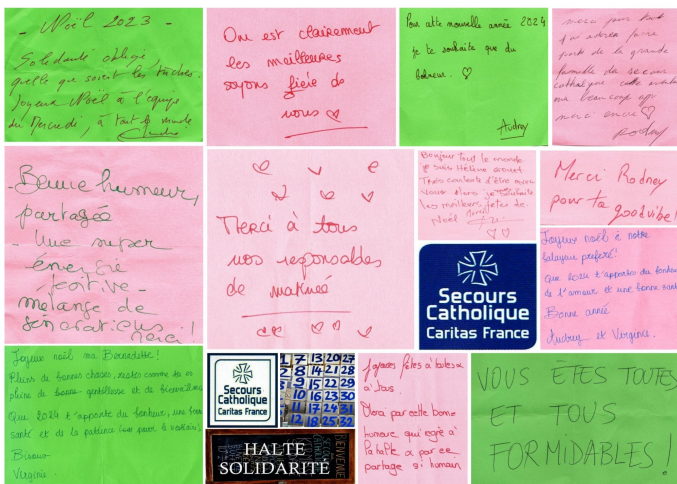 - Noël 2023 -
Solidarité oblige,
quelle que soient les tâches.
Joyeux Noël à l'équipe
du Mercredi, à tout le monde
On est clairement
les meilleures
soyons fière de
nous ♡
Pour cette nouvelle année 2024
je te souhaite que du
bonheur. ♡
Audrey
merci pour tout
faire
partie de la grande
famille du secours
catholique cette
ma beaucoup
merci encore ♡
Rodney
- Bonne humeur,
partagée
- Une super
énergie
positive -
mélange de
générations
merci!
Merci à tous
nos responsables
de matinée
Bonjour tout le monde
je suis Hélène
Très contente d'être parmi
vous alors je souhaite
les meilleurs fêtes de
Noël merci
Merci Rodney
pour ta goodvibe!
Secours
Catholique
Caritas France
Joyeux noël à notre
balayeur préféré!
Que 2024 t'apporte du bonheur
de l'amour et une bonne santé
Bonne année
Audrey et Virginie.
Joyeux noël ma Bernadette!
Pleins de bonnes choses, restes comme tu es
pleine de bonté gentillesse et de bienveillance
Que 2024 t'apporte du bonheur, une bonne
santé et de la patience (oui pour le vestiaire).
Bisous
Virginie.
Secours
Catholique
Caritas France
1 7 13 20 27
2 8 14 21 28
3 9 15 22 29
10 16 23 30
11 17 24 31
12 18 25 32
HALTE
SOLIDARITÉ
BIENVENUE
Joyeuses fêtes à toutes
à tous.
Merci par cette bonne
humeur qui egré à
la halte a par ce
partage si humain
VOUS ÊTES TOUTES
ET TOUS
FORMIDABLES!